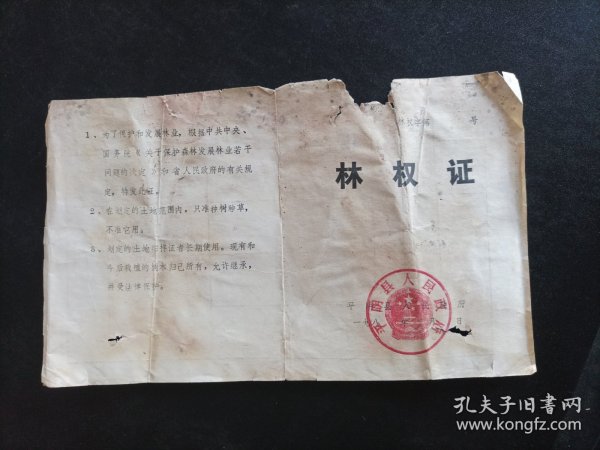 1、为了保护和发展林业，根据中共中央、
国务院《关于保护森林发展林业若干
问题的决定》和省人民政府的有关规
定，特发此证。
2、在划定的土地范围内，只准种树种草，
不准它用。
3、划定的土地 持证者长期使用。现有和
今后栽植的树木归己所有，允许继承，
并受法律保护。
林权字第 号
林权证
平阴县人民政府
平 府
一九 日
孔夫子旧书网
www.kongfz.com